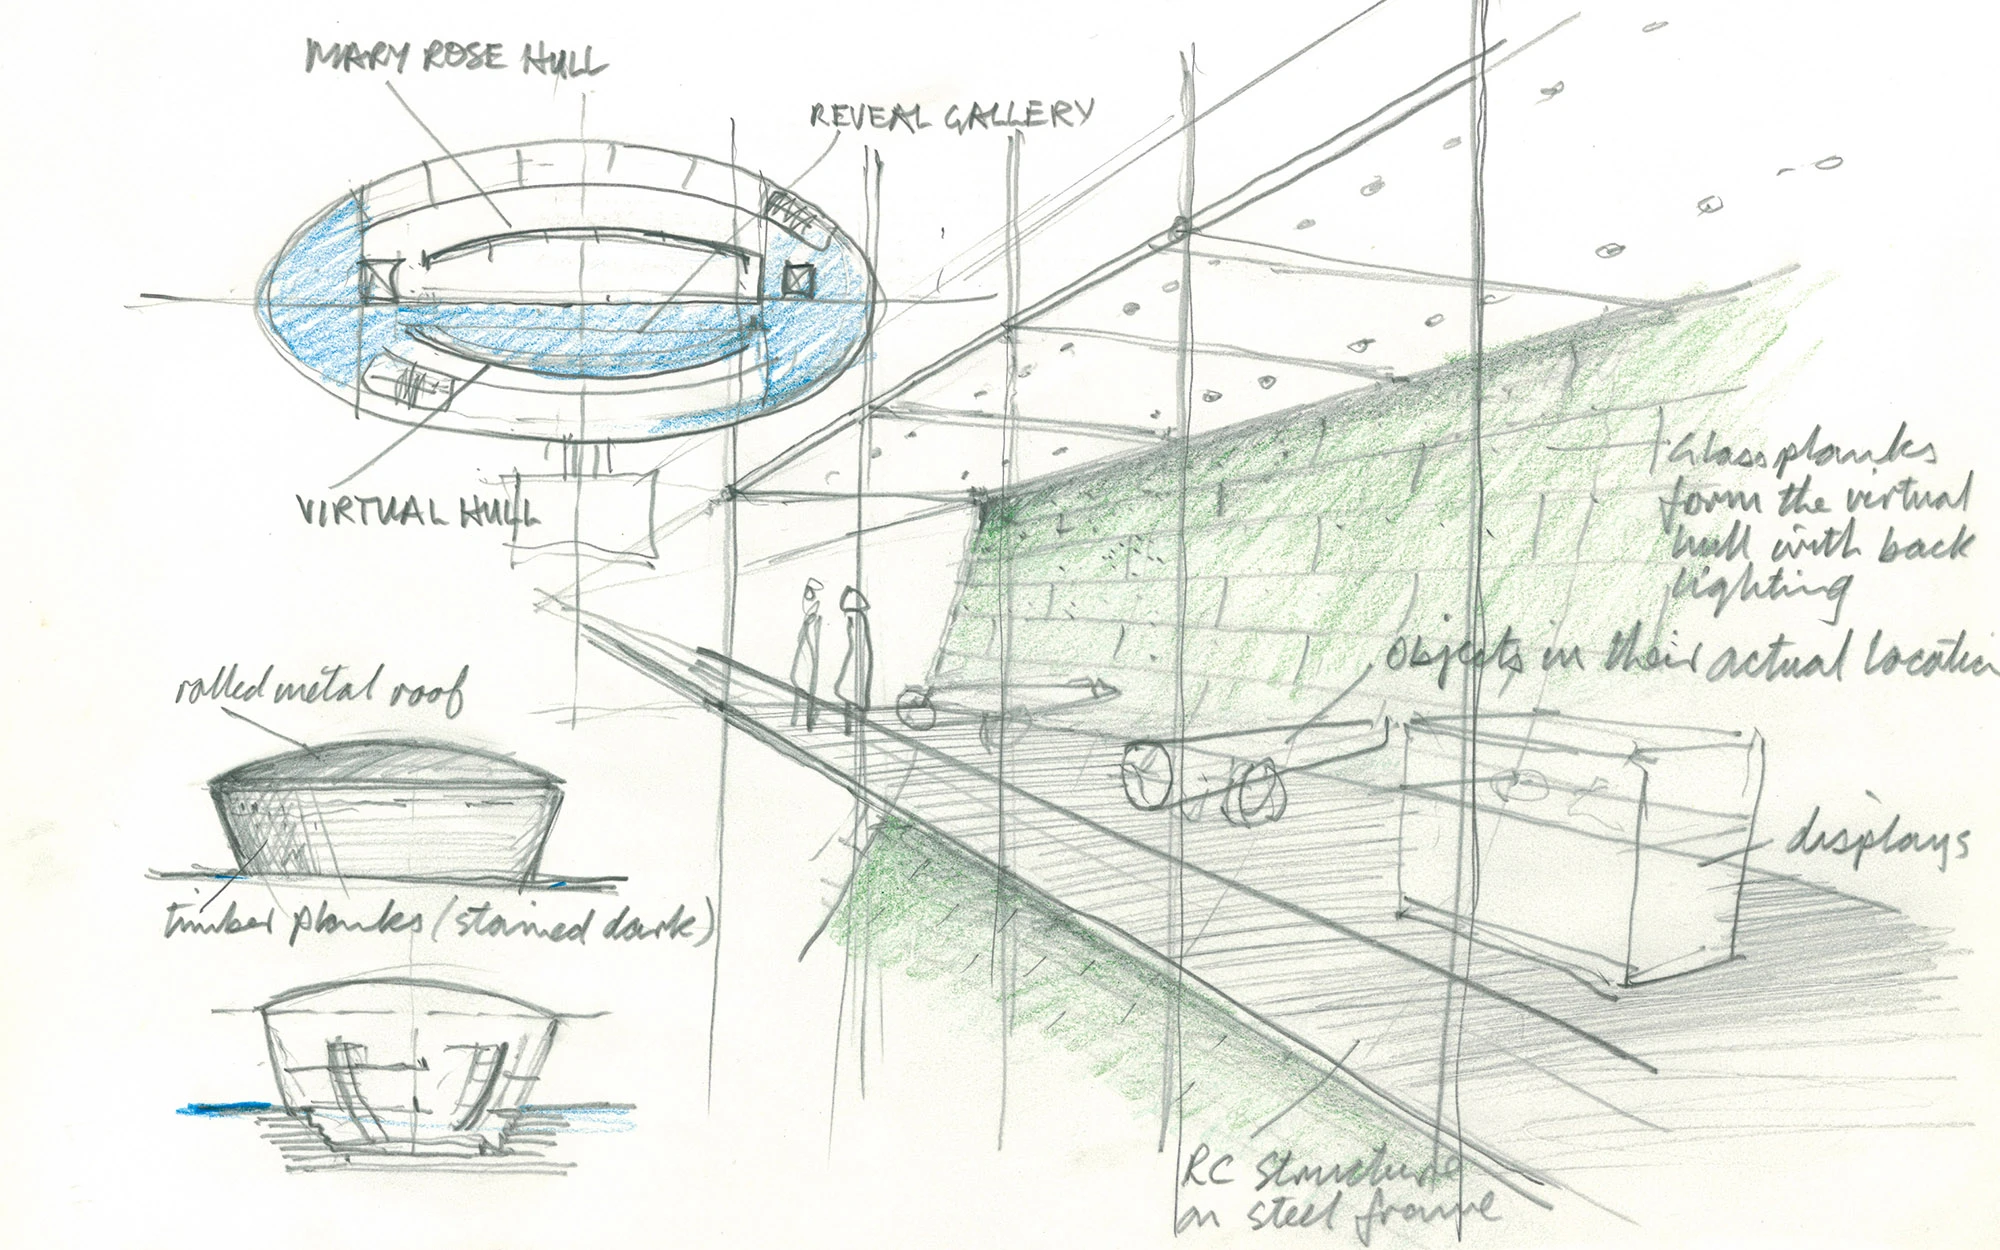 MARY ROSE HULL
REVEAL GALLERY
VIRTUAL HULL
Glass planks
form the virtual
hull with back
lighting
Objects in their actual location
rolled metal roof
displays
timber planks (stained dark)
RC structure
on steel frame